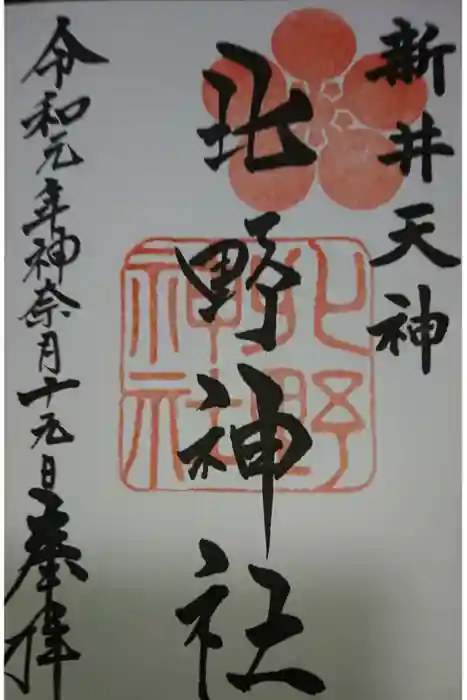 新井天神
北野神社
北野神社
令和元年神奈月十九日奉拝